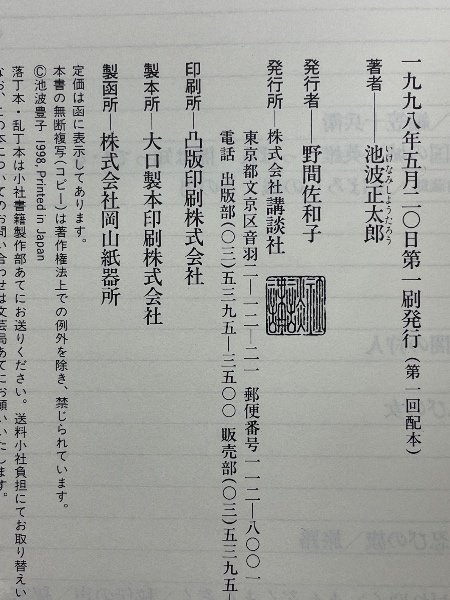 一九九八年五月二〇日第一刷発行（第一回配本）
著者――池波正太郎
いけなみしょうたろう
発行者――野間佐和子
発行所――株式会社講談社
東京都文京区音羽二―一二―二一 郵便番号一一二―八〇〇一
電話 出版部(〇三)五三九五―三五〇〇 販売部(〇三)五三九五―
印刷所――凸版印刷株式会社
製本所――大口製本印刷株式会社
製函所――株式会社岡山紙器所
定価は函に表示してあります。
本書の無断複写(コピー)は著作権法上での例外を除き、禁じられています。
©池波豊子 1998, Printed in Japan
落丁本・乱丁本は小社書籍製作部あてにお送りください。送料小社負担にてお取り替えい
なお、この本についてのお問い合わせは文芸局あてにお願いいたします。